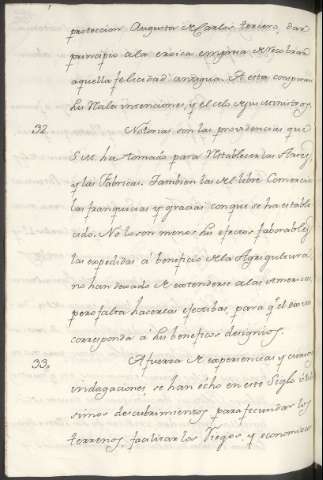 proteccion Augusta de Carlos tercero, dar
principio a la eroica empresa de recobrar
aquella felicidad antigua. A esta conspiran
sus Reales intenciones, y el celo de sus Ministros.
32 Notorias son las providencias que
S.M. ha tomado para restablecer las Artes,
y las Fabricas. Tambien las del libre Comercio
las franquicias y gracias con que se ha estable
cido. No lo son menos sus efectos faborables
las expedidas á beneficio de la Agricultura,
no han dexado de extenderse a las Americas,
pero falta hacerlas efectibas, para q.e el exito
corresponda á sus beneficos designios.
33. A fuerza de experiencias y
indagaciones, se han echo en este Siglo utili
simos descubrimientos para fecundar los
terrenos, facilitar los Riegos, y economizar